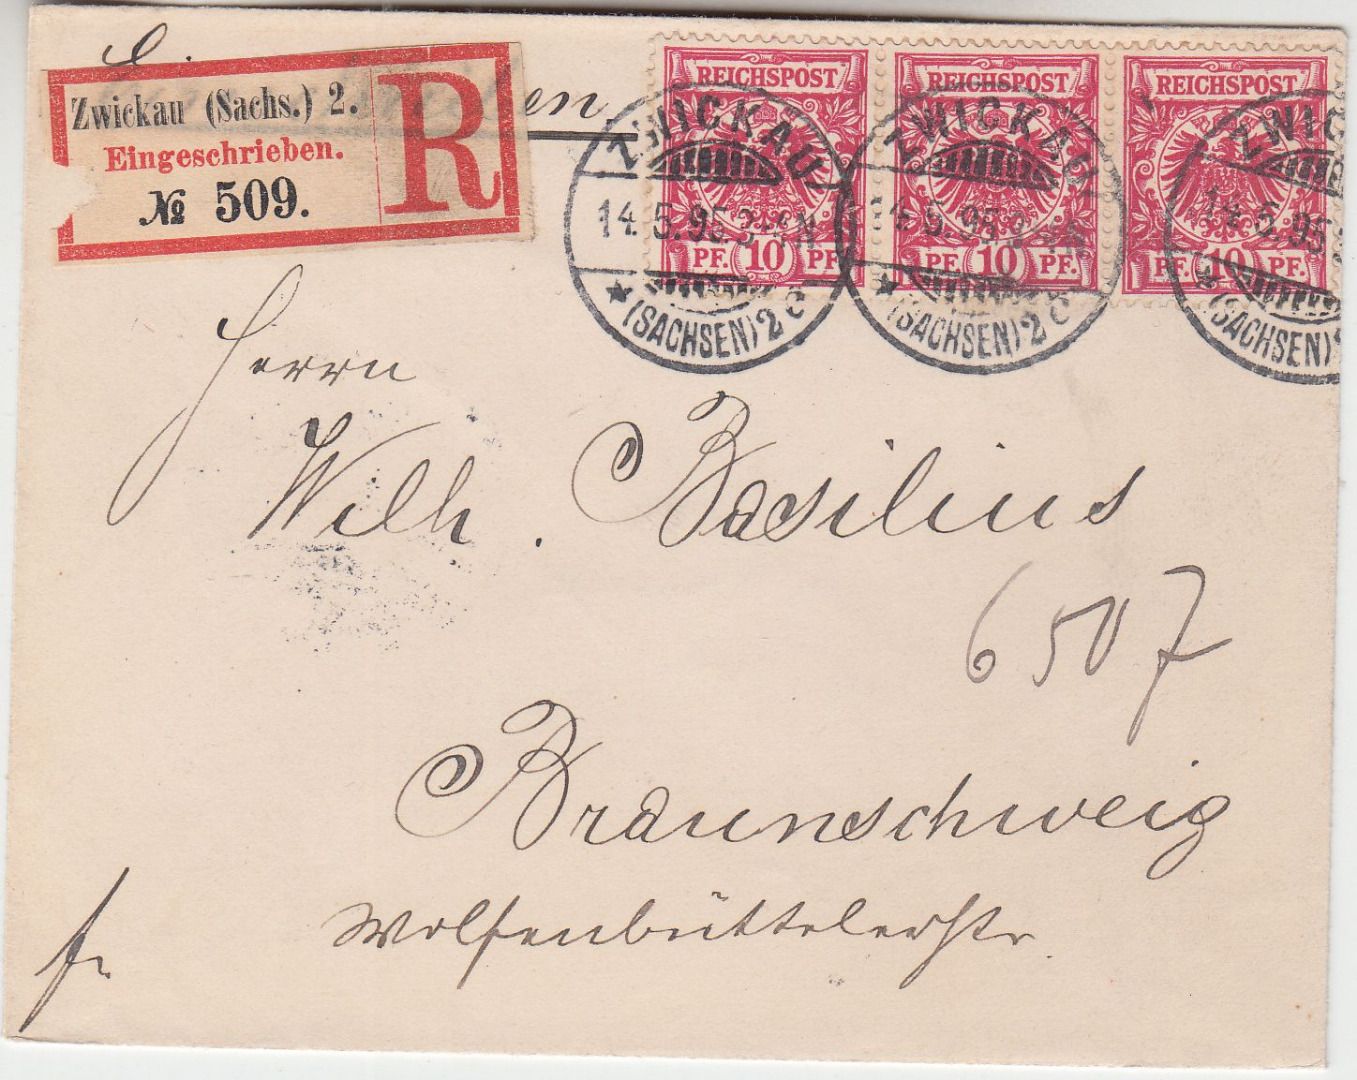 Zwickau (Sachs.) 2.
Eingeschrieben.
№ 509.
R
en.
REICHSPOST
10
PF. PF.
REICHSPOST
10
PF. PF.
REICHSPOST
10
PF. PF.
ZWICKAU
14.5.95 3-4N
★ (SACHSEN) 2 c
ZWICKAU
14.5.95 3-4N
★ (SACHSEN) 2 c
ZWIC
14.5.95
★ (SACHSEN) 2
Herrn
Wilh. Basilius
6507
Braunschweig
Wolfenbüttelerstr.
fr.